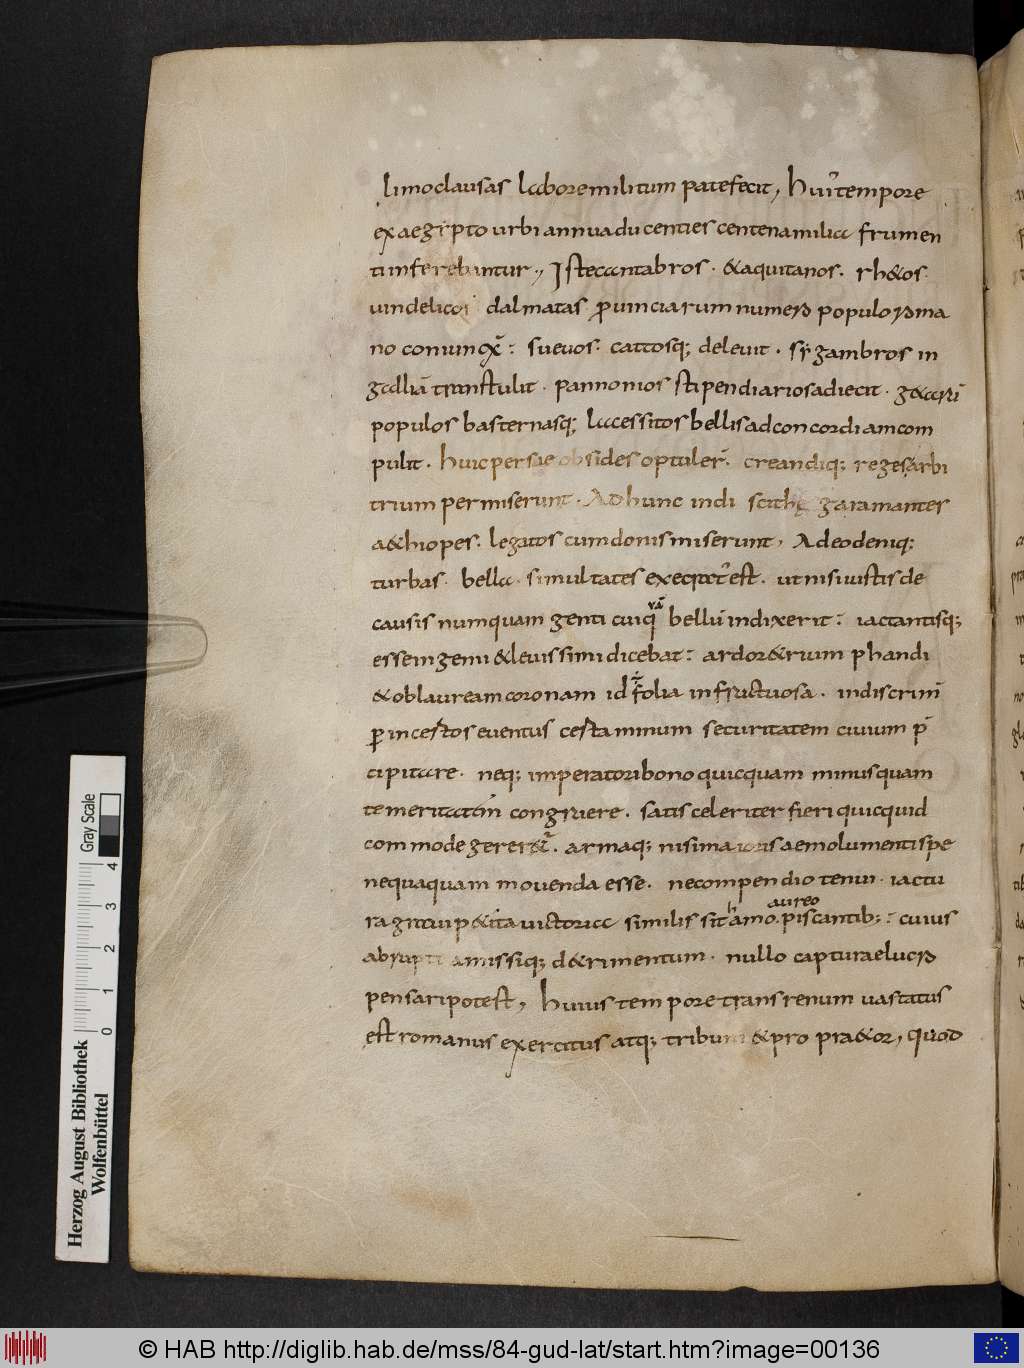 limo clausas labore militum patefecit, Hui᷒ tempore
ex aegypto urbi annua ducenties centena milia frumen
ti inferebantur., Iste cantabros · & aquitanos. rh&os·
uindelicos dalmatas ꝓuinciarum numerꝫ populoꝝ ma
no coniunx̄: sueuos· cattosq; deleuit. sygambros in
galliā transtulit· pannonios stipendiarios adiecit· g&arū
populos basternasq; lacessitos bellis ad concordiam com
pulit. huic persae obsides optuler̄. creandiq; reges arbi
trium permiserunt. Ad hunc indi scithę garamantes
a&hiopes. legatos cum donis miserunt, Adeo deniq;
turbas· bella· simultates execrat᷒ est. ut nisi iustis de
causis numquam genti cuiq̄ uā bellū indixerit: iactantisq;
esse ingenii & leuissimi dicebat: ardor& rium phandi
& ob lauream coronam id÷ folia infructuosa. in discrimē
ꝑ incestos euentus certaminum securitatem ciuium p̄
cipitare. neq; imperatori bono quicquam minus quam
temeritatem congruere. satis celeriter fieri quicquid
commode gereret᷒. armaq; nisi maioris aemolumenti spe
nequaquam mouenda esse. ne compendio tenui· iactu
ra graui p&ita uictoria similis sit hamo. aureo piscantib;: cuius
abrupti amissiq; d&rimentum· nullo capturae lucrꝫ
pensari potest, Huius tempore trans renum uastatus
est romanus exercitus atq; tribuni & propra&or, quod
Herzog August Bibliothek
Wolfenbüttel
Gray Scale
0 1 2 3 4
© HAB http://diglib.hab.de/mss/84-gud-lat/start.htm?image=00136